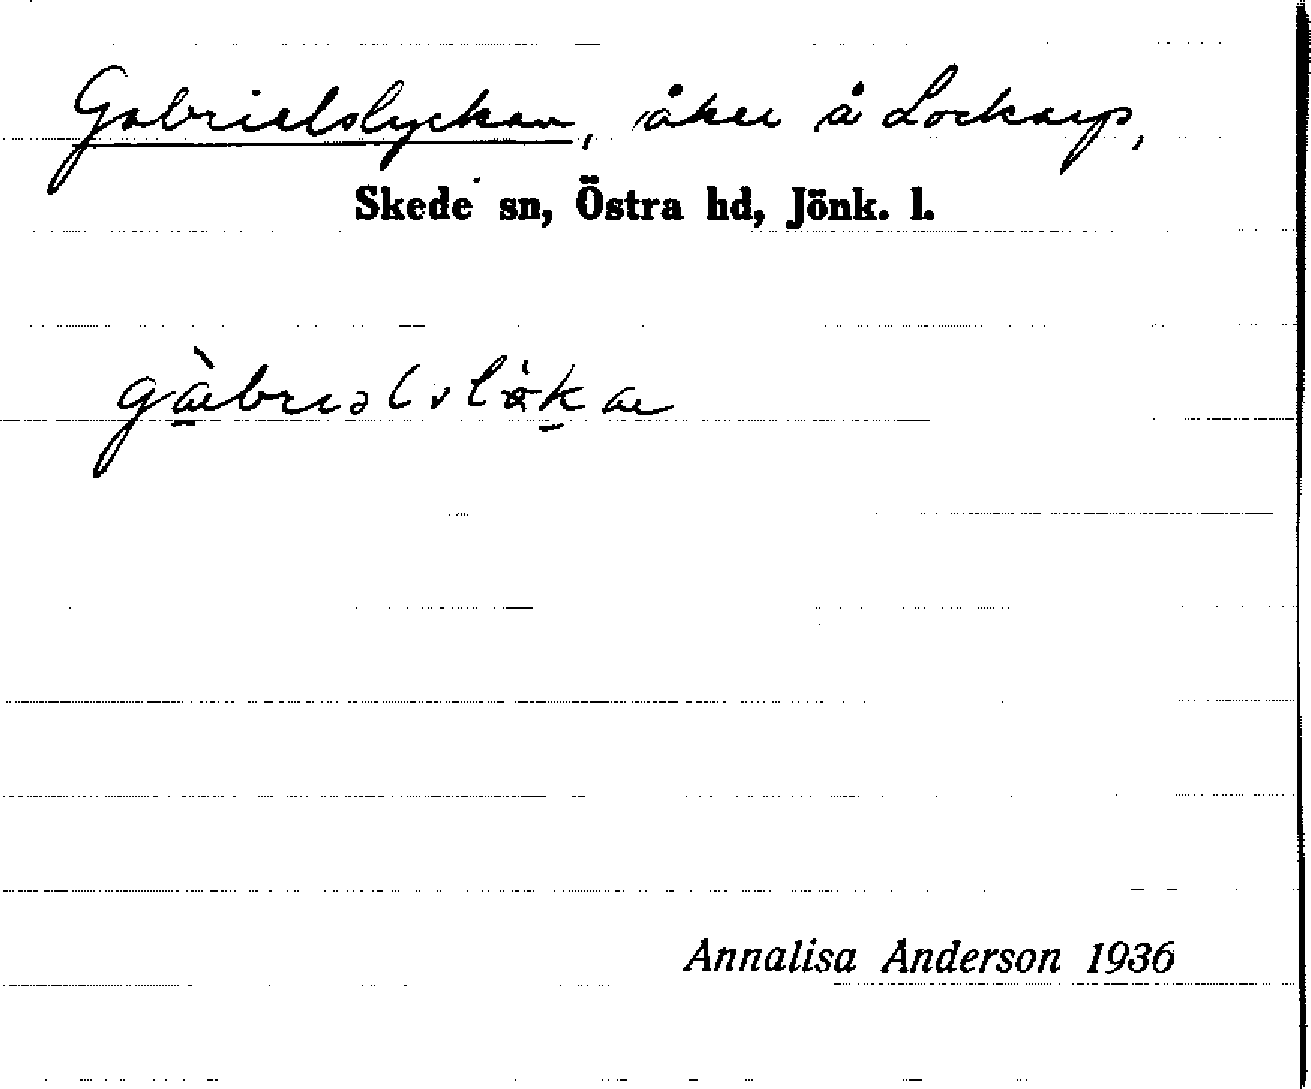 Gabrielslyckan, åker å Lockarp,
Skede sn, Östra hd, Jönk. l.
Annalisa Anderson 1936